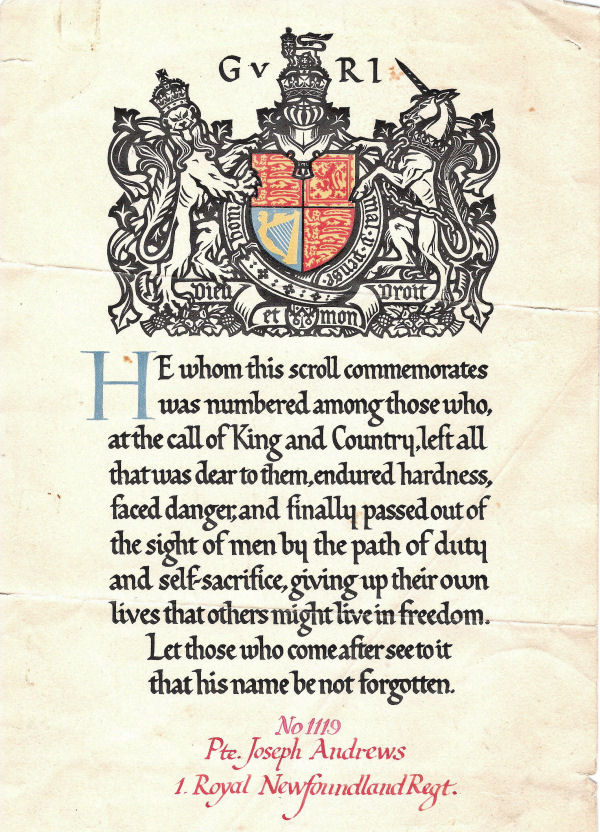 G V R I
mal·y·pense
Dieu et mon Droit
HE whom this scroll commemorates
was numbered among those who,
at the call of King and Country, left all
that was dear to them, endured hardness,
faced danger, and finally passed out of
the sight of men by the path of duty
and self-sacrifice, giving up their own
lives that others might live in freedom.
Let those who come after see to it
that his name be not forgotten.
No 1119
Pte. Joseph Andrews
1. Royal Newfoundland Regt.